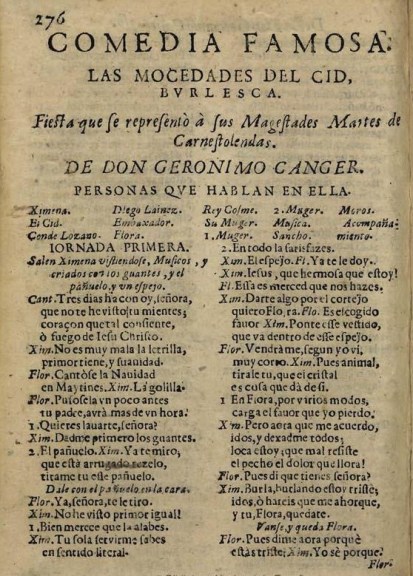 276
COMEDIA FAMOSA.
LAS MOCEDADES DEL CID,
BVRLESCA.
Fiesta que se representò à sus Magestades Martes de
Carnestolendas.
DE DON GERONIMO CANGER.
PERSONAS QVE HABLAN EN ELLA.
Ximena. Diego Lainez. Rey Cosme. 2. Muger. Moros.
El Cid. Embaxador. Su Muger. Musica. Acompaña-
Conde Lozano. Flora. 1. Muger. Sancho. miento.
IORNADA PRIMERA.
Salen Ximena vistiendose, Musicos, y
criados con los guantes, y el
pañuelo, y un espejo.
Cant. Tres dias ha con oy, señora,
que no te he visto; tu mientes;
coraçon que tal consiente,
ò fuego de Iesu Christo.
Xim. No es muy mala la letrilla,
primor tiene, y suauidad.
Flor. Cantòse la Nauidad
en Maytines. Xim. La golilla.
Flor. Pusosela vn poco antes
tu padre, avrà mas de vn hora.
1. Quieres lauarte, señora?
Xim. Dadme primero los guantes.
2. El pañuelo. Xim. Ya te miro,
que està arrugado rezelo,
tirame tu esse pañuelo.
Dale con el pañuelo en la cara.
Flor. Ya, señora, te le tiro.
Xim. No he visto primor igual!
1. Bien merece que la alabes.
Xim. Tu sola servirme sabes
en sentido literal.
2. En todo la satisfazes.
Xim. El espejo. Fl. Ya te le doy.
Xim. Iesus, que hermosa que estoy!
Fl. Essa es merced que nos hazes.
Xim. Darte algo por el cortejo
quiero Flora. Flo. Es el cogido
fauor Xim. Ponte esse vestido,
que va dentro de esse espejo.
Flor. Vendràme, segun yo vi,
muy corto. Xim. Pues animal,
tirale tu, que el cristal
es cosa que dà de si.
1 En Flora, por varios modos,
carga el fauor que yo pierdo.
Xim. Pero aora que me acuerdo,
idos, y dexadme todos;
loca estoy; que mal resiste
el pecho el dolor que llora!
Flor. Pues di que tienes señora?
Xim. Burla, burlando estoy triste;
idos, ò hareis que me ahorque,
y tu, Flora, quedate.
Vanse, y queda Flora.
Flor. Pues dime aora porquè
estàs triste: Xim. Yo sè porque.
Flor.